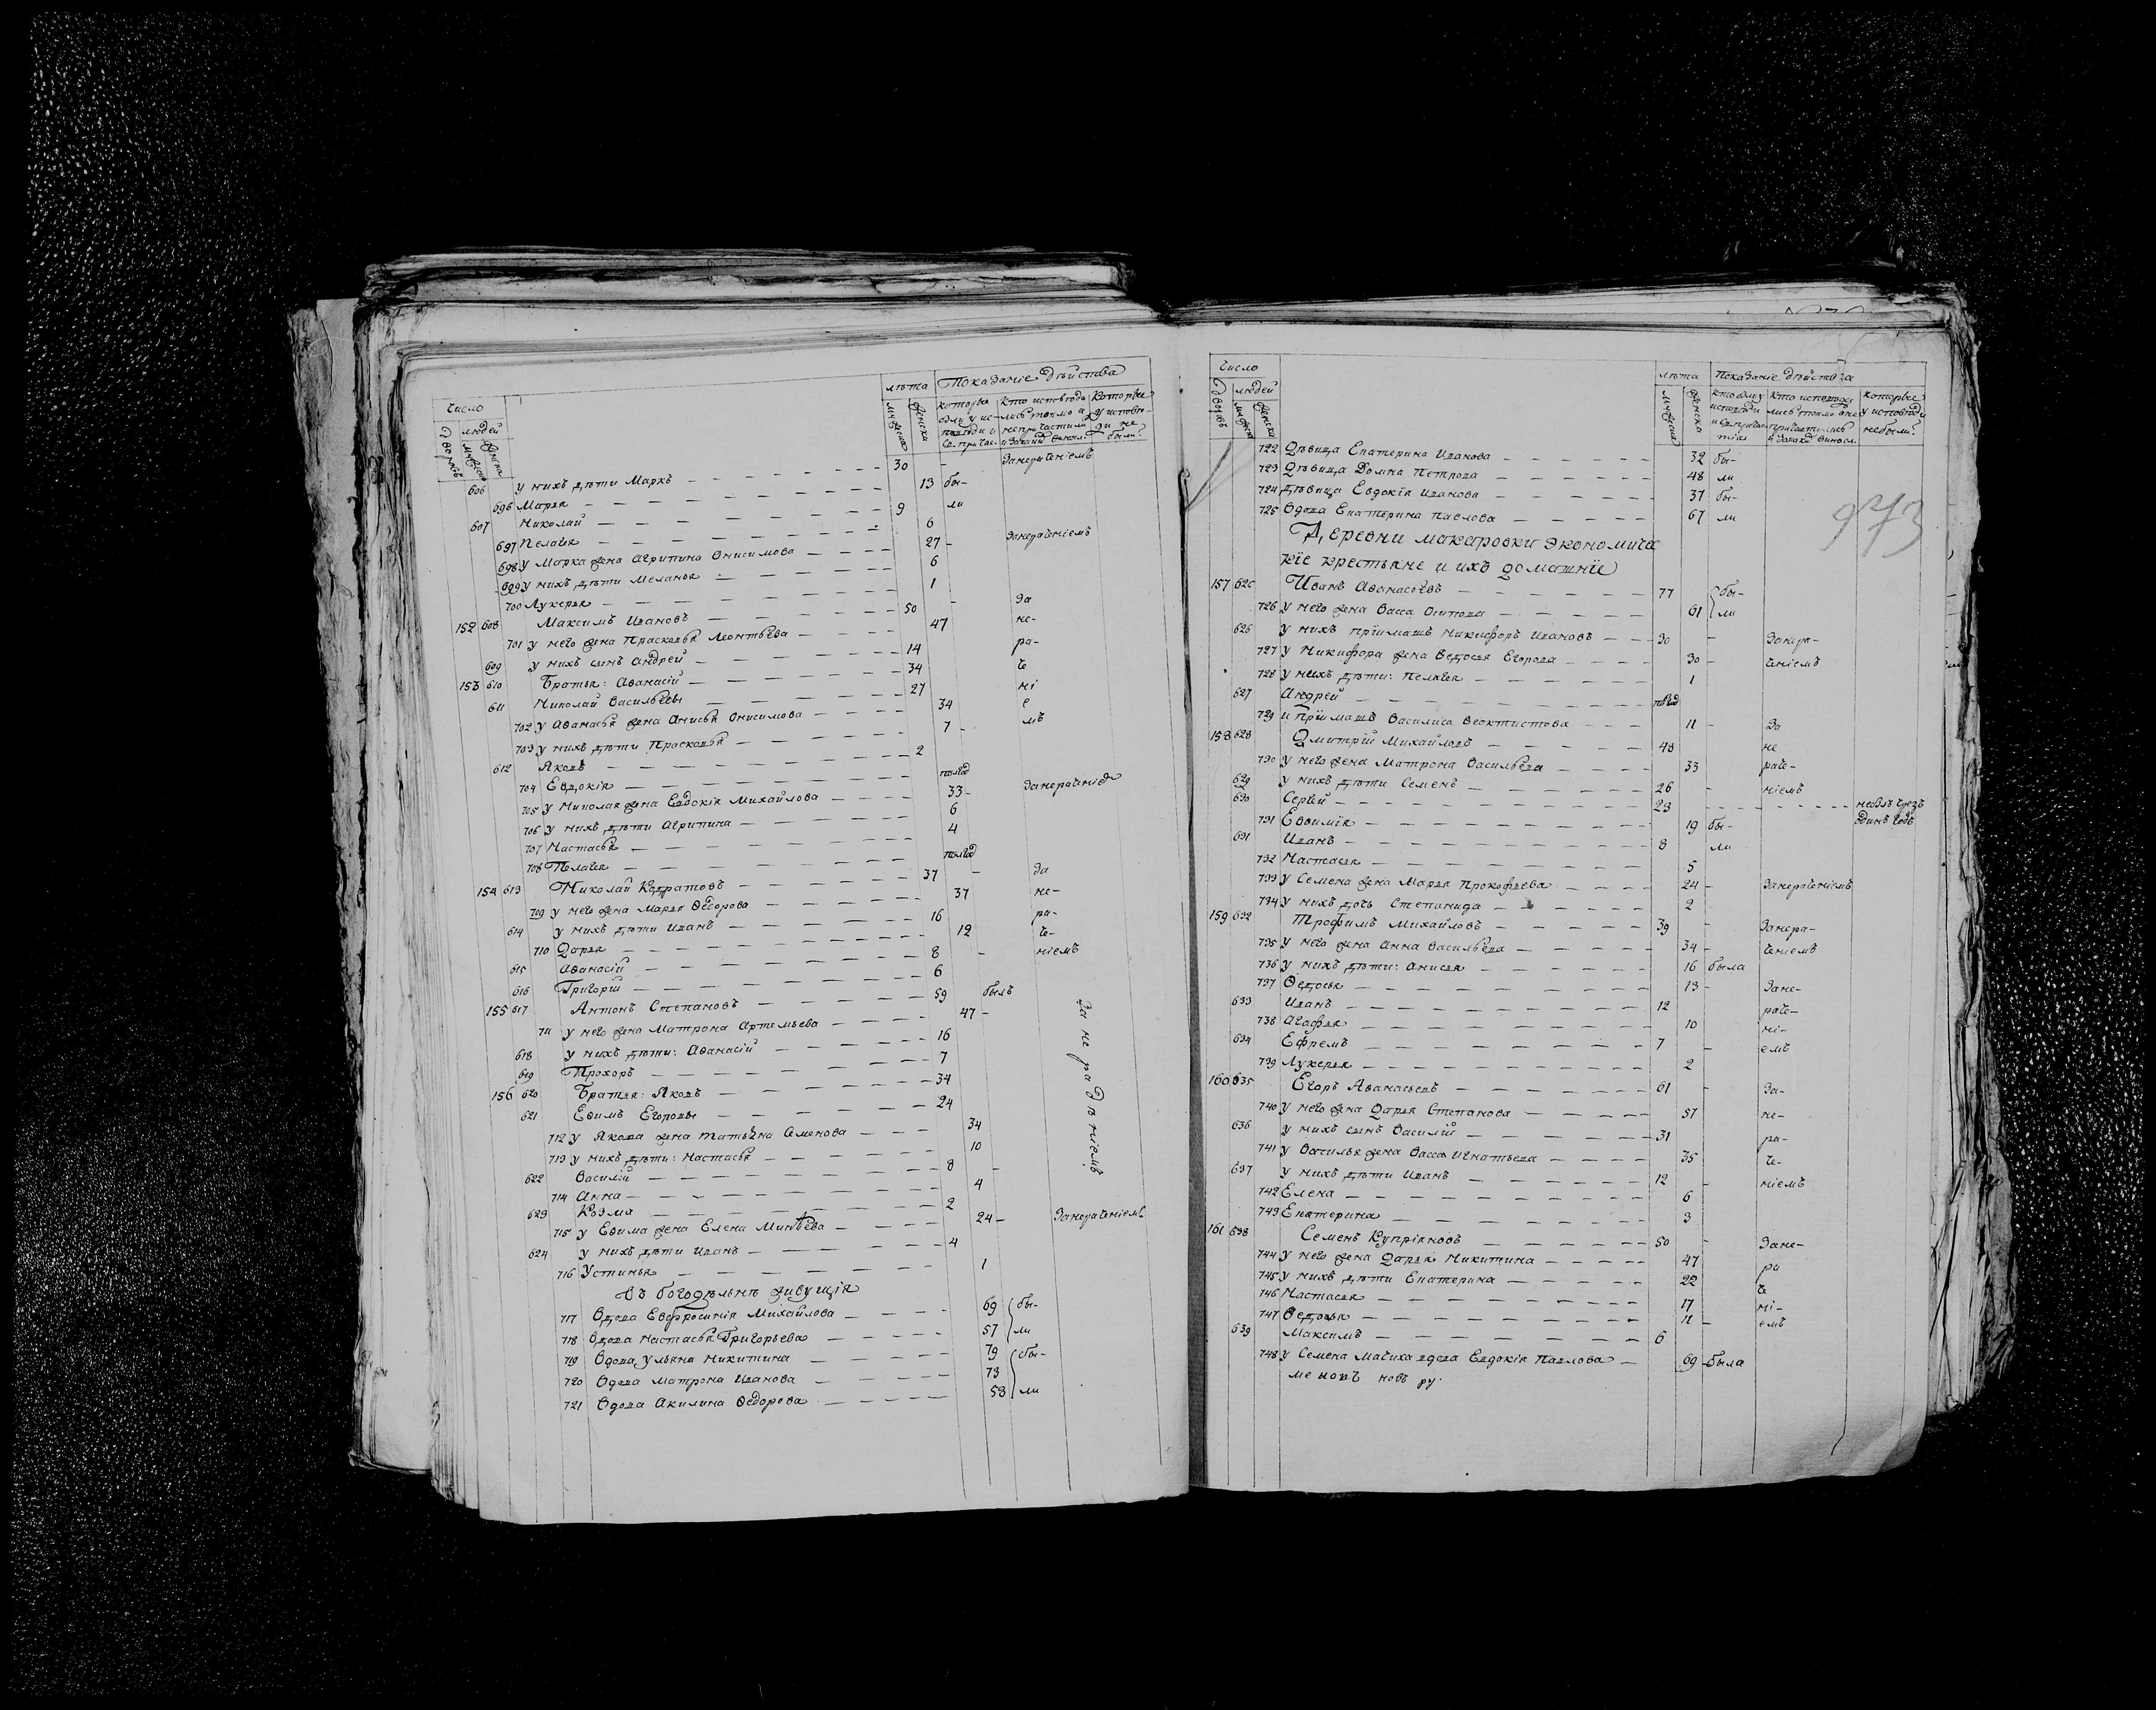 число
лѣта Показаніе дѣйства
дворовъ людей
мужеска женска
мужеска женска
606 у нихъ дѣти Маркъ 30 - Занераченіемъ
696 Марья 13 бы-
607 Николай 9 ли
697 Пелагея 6
698 у Марка жена Агрипина Онисимова 27 - Занераченіемъ
699 у нихъ дѣти Меланья 6
700 Лукерья 1
152 608 Максимъ Ивановъ 50 - За
701 у него жена Прасковья Леонтьева 47 не-
609 у нихъ сынъ Андрей 14 ра-
153 610 Братья: Аѳанасій 34 че
611 Николай Васильевы 27 ні
702 у Аѳанасья жена Анисья Онисимова 34 е
703 у нихъ дѣти Прасковья 7 - мъ
612 Яковъ 2
704 Евдокія полгод
705 у Николая жена Евдокія Михайлова 33 - Занераченіе
706 у нихъ дѣти Агрипина 6
707 Настасья 4
708 Пелагея полгод
154 613 Николай Кодратовъ 37 - За
709 у него жена Марья Ѳедорова 37 не-
614 у нихъ дѣти Иванъ 16 ра-
710 Дарья 12 че-
615 Аѳанасій 8 - ніемъ
616 Григорій 6
155 617 Антонъ Степановъ 59 былъ
711 у него жена Матрона Артемьева 47 -
618 у нихъ дѣти: Аѳанасій 16
619 Прохоръ 7
156 620 Братья: Яковъ 34
621 Ефимъ Егоровы 24
712 у Якова жена Татьяна Семенова 34
713 у нихъ дѣти: Настасья 10
622 Василій 8 -
714 Анна 4
623 Козма 2
За не ра дѣ ніемъ
715 у Ефима жена Елена Минѣева 24 - Занераченіемъ
624 у нихъ дѣти Иванъ 4
716 Устинья 1
Въ богодѣльнѣ живущія
717 Вдова Евфросинія Михайлова 69 бы-
718 Вдова Настасья Григорьева 57 ли
719 Вдова Ульяна Никитина 79 бы-
720 Вдова Матрона Иванова 73
721 Вдова Акилина Ѳедорова 58 ли
число
лѣта Показаніе дѣйства
дворовъ людей
мужеска женска
мужеска женска
которые у исповѣди небыли?
722 Дѣвица Екатерина Иванова 32 бы-
723 Дѣвица Домна Петрова 48 ли
724 Дѣвица Евдокія Иванова 37 бы-
725 Вдова Екатерина Павлова 67 ли
973
Деревни Макаровки экономичес
кіе крестьяне и ихъ домашніе
157 625 Иванъ Аѳанасьевъ 77 бы-
726 У него жена Васса Осипова 61 ли
626 у нихъ пріимашъ Никифоръ Ивановъ 30 - Занера-
727 У Никифора жена Ѳедосья Егорова 30 - ченіемъ
728 У нихъ дѣти: Пелагея 1
627 Андрей полгод
729 и пріимашъ Василиса Ѳеоктистова 11 - За
158 628 Дмитрій Михайловъ 48 не
730 У него жена Матрона Васильева 33 раче-
629 у нихъ дѣти Семенъ 26 - ніемъ
630 Сергѣй 23 - небылъ чрезъ
731 Евѳимія 19 бы- одинъ годъ
631 Иванъ 8 ли
732 Настасья 5
733 У Семена жена Марья Прокофьева 24 - Занераченіемъ
734 У нихъ дочь Степанида 2
159 632 Трофимъ Михайловъ 39 - Занера-
735 У него жена Анна Васильева 34 - ченіемъ
736 У нихъ дѣти: Анисья 16 была
737 Ѳедосья 13 - Зане-
633 Иванъ 12 раче-
738 Агафья 10 ні-
634 Ефремъ 7 - емъ
739 Лукерья 2
160 635 Егоръ Аѳанасьевъ 61 - За-
740 У него жена Дарья Степанова 57 не-
636 у нихъ сынъ Василій 31 ра-
741 У Василья жена Васса Игнатьева 35 че-
637 у нихъ дѣти Иванъ 12 - ніемъ
742 Елена 6
743 Екатерина 3
161 638 Семенъ Купріяновъ 50 - Зане-
744 У него жена Дарья Никитина 47 ра
745 У нихъ дѣти Екатерина 22 че
746 Настасья 17 ні-
747 Ѳедосья 11 - емъ
639 Максимъ 6
748 У Семена мачиха вдова Евдокія Павлова 69 была